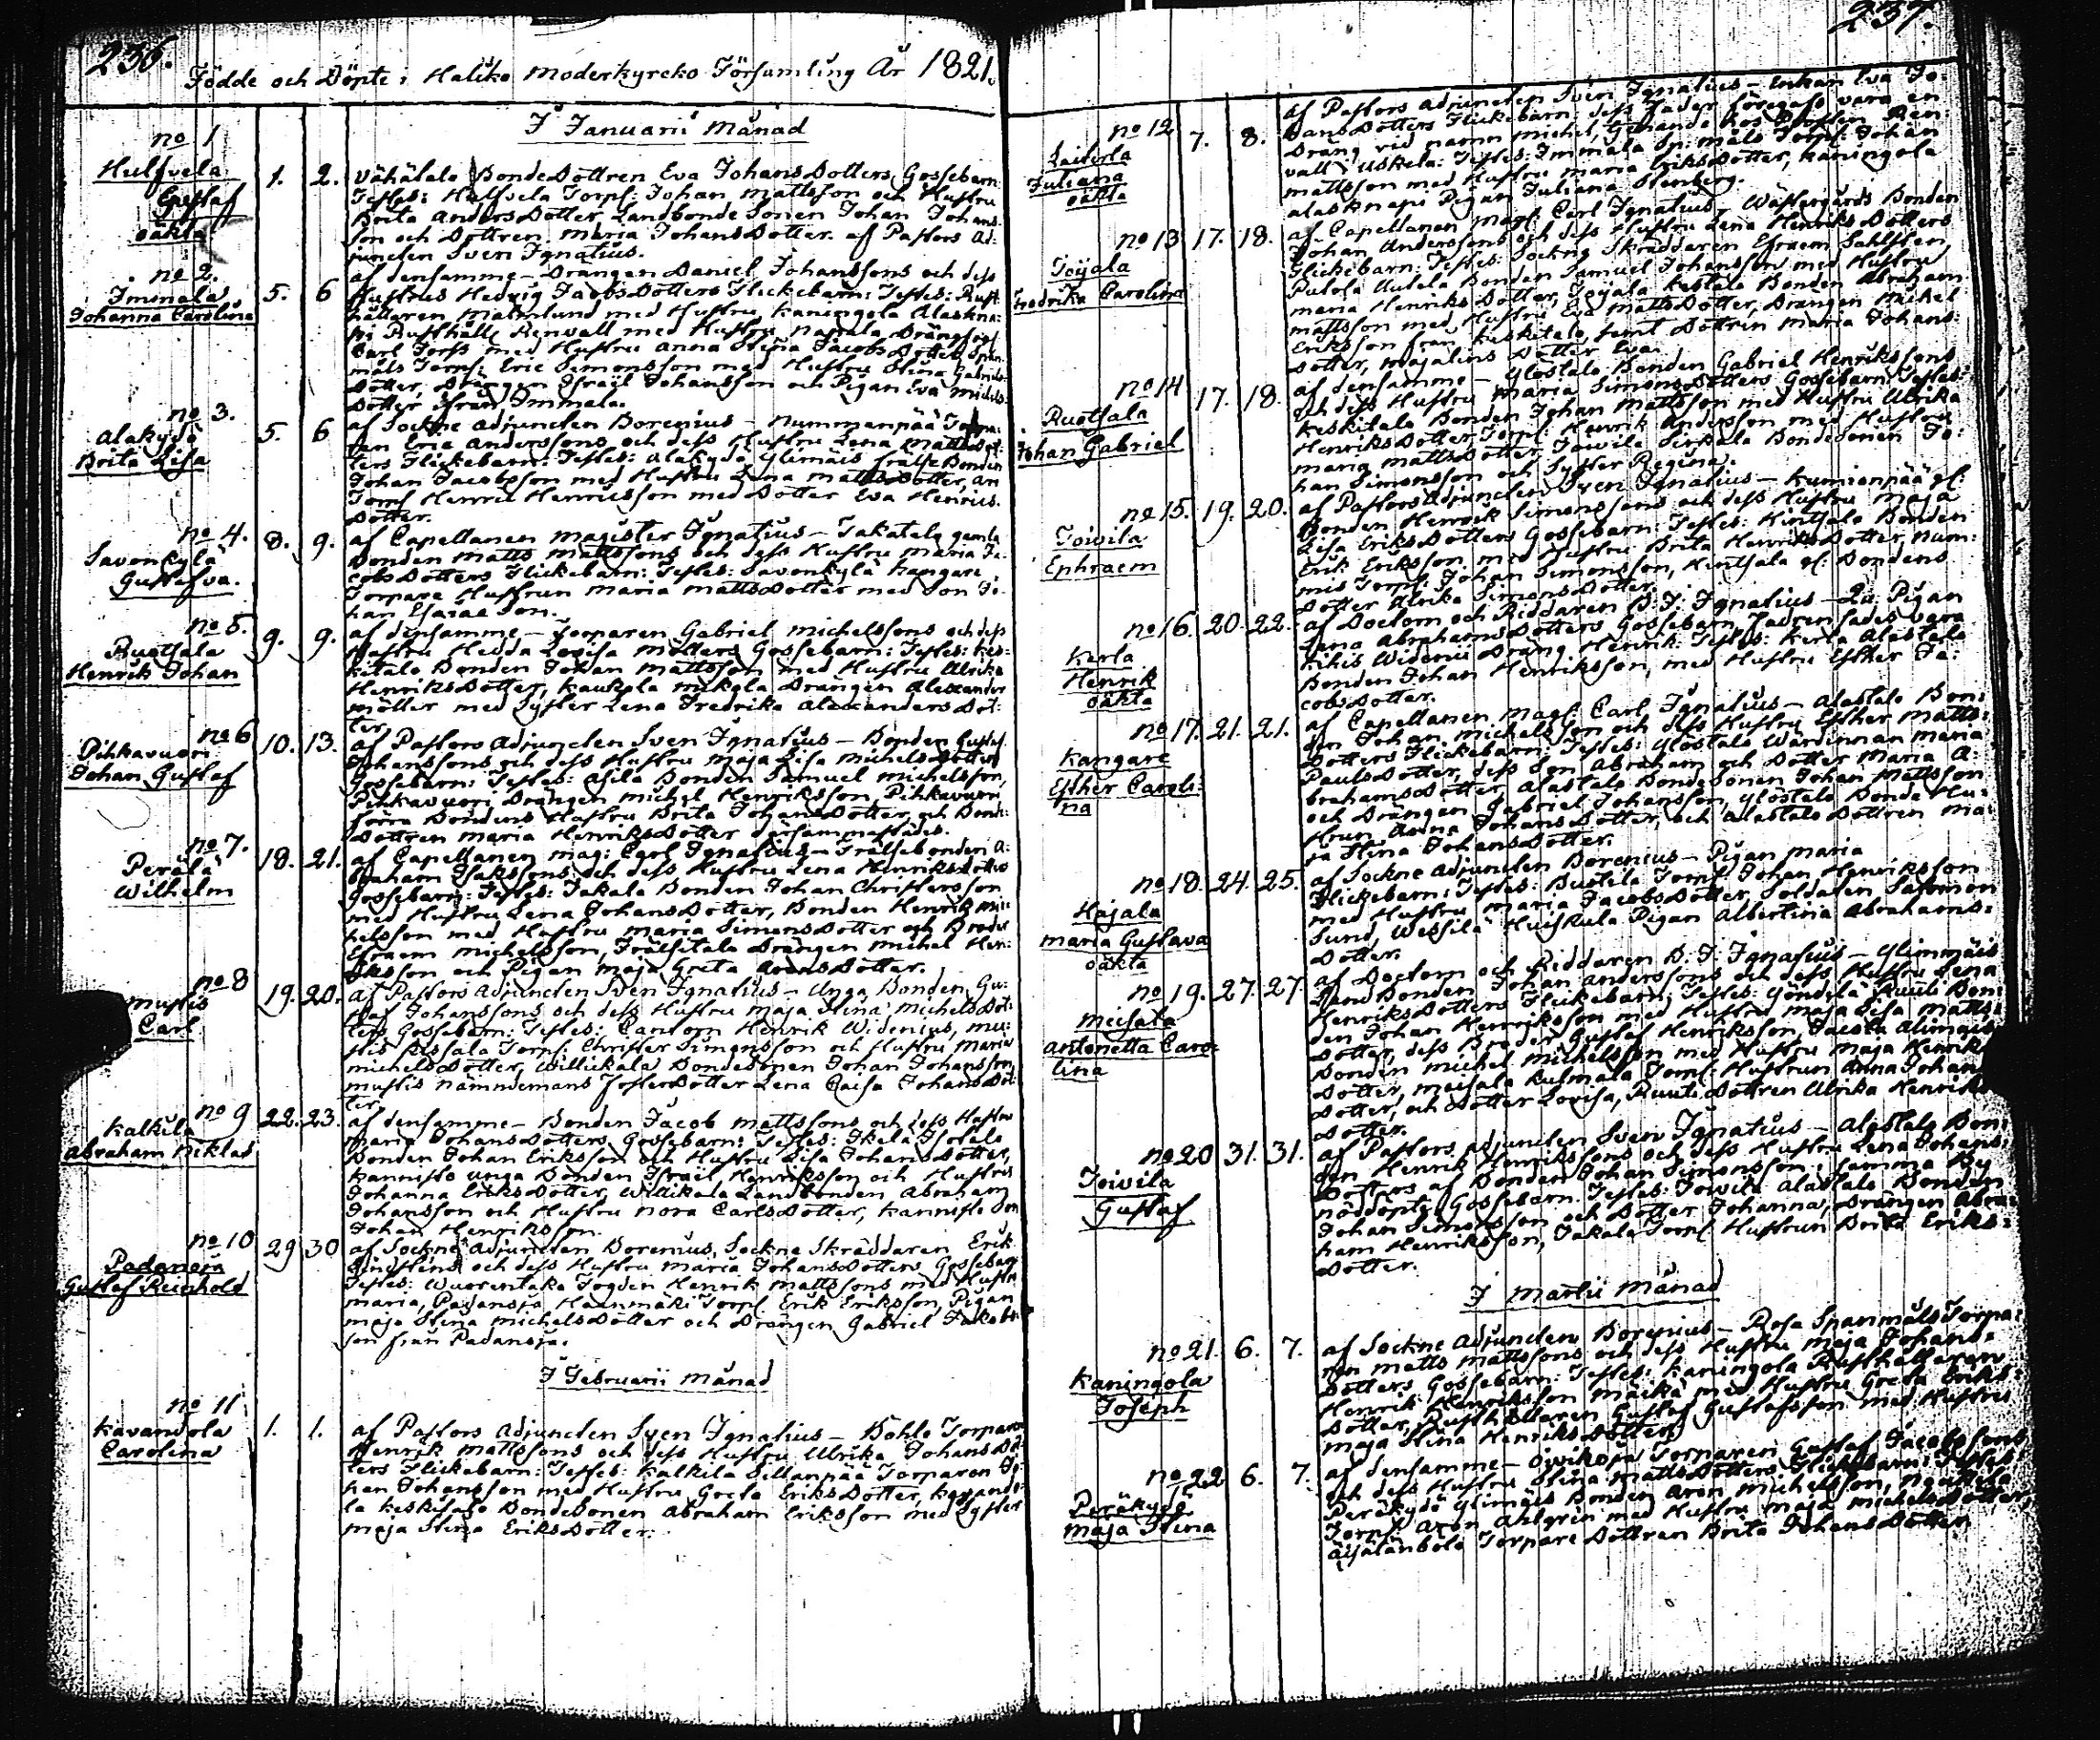 236.
Födde och Döpte i Haliko Moderkyrcko Församling År 1821.
I Januarii Månad
no 1
Hulfvela
Gustaf
oäkta
1. 2.
Vähätalo BondeDottren Eva JohansDotters Gossebarn
Testes: Hulfvela Torp: Johan Mattsson och Hustru
Brita AndersDotter, Landbonde Sonen Johan Johans:
son och Dottren Maria JohansDotter. af Pastors Ad:
juncten Sven Ignatius.
no 2.
Immala
Johanna Carolina
5. 6
af densamme – Drängen Daniel Johanssons och dess
Hustrus Hedvig JacobsDotters Flickebarn: Testes: Rust:
hållaren Malmlund med Hustru, Kaningola Alaskna:
pi Rusthåll: Renvall med Hustru, Dräng
Carl med Hustru Anna Stina JacobsDotter, Span:
måls Torp: Eric Simonsson med Hustru Stina Gabriels
Dotter, Drängen Israel Johansson och Pigan Eva Michels:
Dotter ifrån Immala.
no 3.
Alakydö
Brita Lisa
5. 6
af Sockne Adjuncten Borenius – Nummenpää Torpa:
ren Eric Anderssons och dess Hustru Lena MattsDot:
ters Flickebarn: Testes: Alakydö Ylimäis FrälseBonden
Johan Jacobsson med Hustru Lena MattsDotter, An
Torp: Henric Henricsson med Dotter Eva Henrics
Dotter.
no 4.
Savonkylä
Gustafva.
8. 9.
af Capellanen Magister Ignatius – Takatalo gamla
Bonden Matts Mattssons och dess Hustru Maria Ja:
cobsDotters Flickebarn: Testes: Savonkylä Kangare
Torpare Hustrun Maria MattsDotter med Son Jo:
han Esaiae Son.
no 5.
Ruotsala
Henrik Johan
9. 9.
af densamme – Torparen Gabriel Michelssons och dess
Hustru Hedda Lovisa Möllers Gossebarn: Testes: Kes:
kitalo Bonden Johan Mattsson med Hustru Ulrika
HenriksDotter, Kaukola Mikola Drängen Alexander
Möller med Syster Lena Fredrika AlexandersDot:
ter.
no 6
Pihkavuori
Johan Gustaf
10. 13.
af Pastors Adjuncten Sven Ignatius – Bonden Gustaf
Johanssons och dess Hustru Maja Lisa MichelsDotters
Gossebarn: Testes: Bonden Samuel Michelsson,
Pihkavuori Drängen Michel Henriksson, Pihkavuori
förra Bondens Hustru Brita JohansDotter och Bonde:
Dottren Maria HenriksDotter därsammastädes.
no 7.
Perälä
Wilhelm
18. 21.
af Capellanen Mag: Carl Ignatius – Frälsebonden A:
braham Isakssons och dess Hustru Lena HenriksDotters
Gossebarn: Testes: Takala Bonden Johan Christersson
med Hustru Lena JohansDotter, Bonden Henrik Mi:
chelsson med Hustru Maria SimonsDotter och Broder
Efraem Michelsson, Drängen Michel Hen:
riksson och Pigan Maja Greta AronsDotter.
no 8
Mustis
Carl
19. 20.
af Pastors Adjuncten Sven Ignatius – Unga Bonden Gu:
staf Johanssons och dess Hustru Maja Stina MichelsDot:
ters Gossebarn: Testes: Cantorn Henrik Widenius, Mu:
stis Torp: Christer Simonsson och Hustru Maria
MichelsDotter, Willickala BondeSonen Johan Johansson,
Mustis Nämndemans SysterDotter Lena Caisa JohansDot
ter.
no 9
Kalkila
Abraham Niklas
22. 23.
af densamme – Bonden Jacob Mattssons och dess Hustru
Maria JohansDotters Gossebarn: Testes: Isotalo
Bonden Johan Eriksson och Hustru Lisa JohansDotter,
Kannisto unga Bonden Israel Henriksson och Hustru
Johanna EriksDotter, Willikala Landbonden Abraham
Johansson och Hustru Nora CarlsDotter, Kannisto Son
Johan Henriksson.
no 10
Padanoja
Gustaf Reinhold
29 30
af Sockne Adjuncten Borenius, Sockne Skräddaren Erik
och dess Hustru Maria JohansDotters Gossebarn
Testes: Wuorentaka Fogden Henrik Mattssons med Hustru
Maria, Padanoja Torp: Erik Eriksson, Pigan
Maja Stina MichelsDotter och Drängen Gabriel Jakobs:
son från Padanoja.
I Februarii Månad
no 11
Kavandola
Carolina
1. 1.
af Pastors Adjuncten Sven Ignatius – Torparen
Henrik Mattssons och dess Hustru Ulrika JohansDot
ters Flickebarn: Testes: Kalkila Sillanpää Torparen Jo:
han Johansson med Hustru Greta EriksDotter, Kavando:
la Keskitalo BondeSonen Abraham Eriksson med Syster
Maja Stina EriksDotter.
237.
no 12
Juliana
oäkta
7. 8.
af Pastors Adjuncten Sven Ignatius – Enkan Eva Jo:
hansDotters Flickebarn, dess Fader föregafs vara en
Dräng vid namn Michel, hos Ren:
vall i Uskela. Testes: Immala Sp: måls Torp: Johan
Mattsson med Hustru Maria EriksDotter, Kaningola
Alasknapi Pigan Juliana Stenberg.
no 13
Joijala
Fredrika Carolina
17. 18.
af Capellanen Mag: Carl Ignatius – Wästergårds Bonden
Johan Anderssons och dess Hustru Lena HenriksDotters
Flickebarn: Testes: Sockne Skräddaren Efraem Sahlsten,
Pulola Autela Bonden Samuel Johansson med Hustru
Maria HenriksDotter, Joijala Keskitalo Bonden Abraham
Mattsson med Hustru Eva MattsDotter, Drängen Mickel
Eriksson från Keskitalo, samt Dottren Maria Johans:
Dotter, Majalins Dotter Eva.
no 14
Ruotsala
Johan Gabriel
17. 18.
af densamme – Ylöstalo Bonden Gabriel Henrikssons
och dess Hustru Maria SimonsDotters Gossebarn: Testes:
Keskitalo Bonden Johan Mattsson med Hustru Ulrika
HenriksDotter, Torp: Henrik Andersson med Hustru
Maria MattsDotter, Toivila Perkala BondeSonen Jo:
han Simonsson och Syster Regina.
no 15.
Toivila
Ephraem
19. 20.
af Pastors Adjuncten Sven Ignatius – Kumionpää gl:
Bonden Henrik Simonssons och dess Hustru Maja
Lisa EriksDotters Gossebarn: Testes: Hintsala Bonden
Erik Eriksson med Hustru Brita HenriksDotter, Num:
mis Torp: Johan Simonsson, Hintsala gl: Bondens
Dotter Ulrika SimonsDotter.
no 16.
Kerla
Henrik
oäkta
20. 22.
af Doctorn och Riddaren B. J. Ignatius – Pigan
Lena AbrahamsDotters Gossebarn, Fadren sades vara
Widenii Dräng Henrik: Testes: Kerla Alastalo
Bonden Johan Henriksson, med Hustru Esther Ja:
cobsDotter.
no 17.
Kangare
Esther Caroli:
na
21. 21.
af Capellanen Mag: Carl Ignatius – Alastalo Bon:
den Johan Michelsson och dess Hustru Esther Matts:
Dotters Flickebarn: Testes: Ylöstalo Wärdinnan Maria
PaulsDotter, dess Son Abraham och Dotter Maria A:
brahamsDotter, Alastalo BondeSonen Johan Mattsson
och Drängen Gabriel Johansson, Ylöstalo Bonde Hu:
strun Anna JohansDotter, och Alastalo Dottren Ma:
ja Stina JohansDotter.
no 18.
Hajala
Maria Gustava
oäkta
24. 25.
af Sockne Adjuncten Borenius – Pigan Maria
Flickebarn: Testes: Bustila Torp: Johan Henriksson
med Hustru Maria JacobsDotter, Soldaten Salomon
Sund, Wessilä Huiskula Pigan Albertina Abrahams:
Dotter.
no 19.
Meisala
Antonetta Caro:
lina
27. 27
af Doctorn och Riddaren B. J. Ignatius – Ylimmäis
LandBonden Johan Anderssons och dess Hustru Lena
HenriksDotters Flickebarn: Testes: Yöndilä Ruuti Bon:
den Johan Henriksson med Hustru Maja Lisa Matts:
Dotter, dess Broder Gustaf Henriksson, Alimäis
Bonden Michel Michelsson med Hustru Maja Henriks
Dotter, Meisala Kulmala Torp: Hustrun Anna Johans
Dotter, och Dotter Lovisa, Ruuti Dottren Ulrika Henriks
Dotter.
no 20
Toivila
Gustaf
31. 31.
af Pastors Adjuncten Sven Ignatius – Alastalo Bon:
den Henrik Henrikssons och dess Hustru Lena Johans:
Dotters af Bonden Johan Simonsson i samma By
nöddöpte Gossebarn. Testes: Toivila Alastalo Bonden
Johan Simonsson och Dotter Johanna, Drängen Abra:
ham Henriksson, Takala Torp: Hustrun Brita Eriks:
Dotter.
I Martii Månad
no 21.
Kaningola
Joseph
6. 7.
af Sockne Adjuncten Borenius – Rosa SpanmålsTorpa:
ren Matts Mattssons och dess Hustru Maja Johans:
Dotters Gossebarn: Testes: Kaningola Rusthållaren
Henrik Henriksson Maikä med Hustru Greta Eriks:
Dotter, Rusthållaren Gustaf Gustafsson med Hustru
Maja Stina HenriksDotter.
no 22
Peräkydö
Maja Stina
6. 7.
af densamme – Oivikoja Torparen Gustaf Jacobssons
och dess Hustru Stina MattsDotters Flickebarn: Testes:
Peräkydö Ylimäis Bonden Aron Michelsson,
Torp: Aron Ahlgren med Hustru Maja MichelsDotter,
Äijälänbölä Torpare Dottren Brita JohansDotter